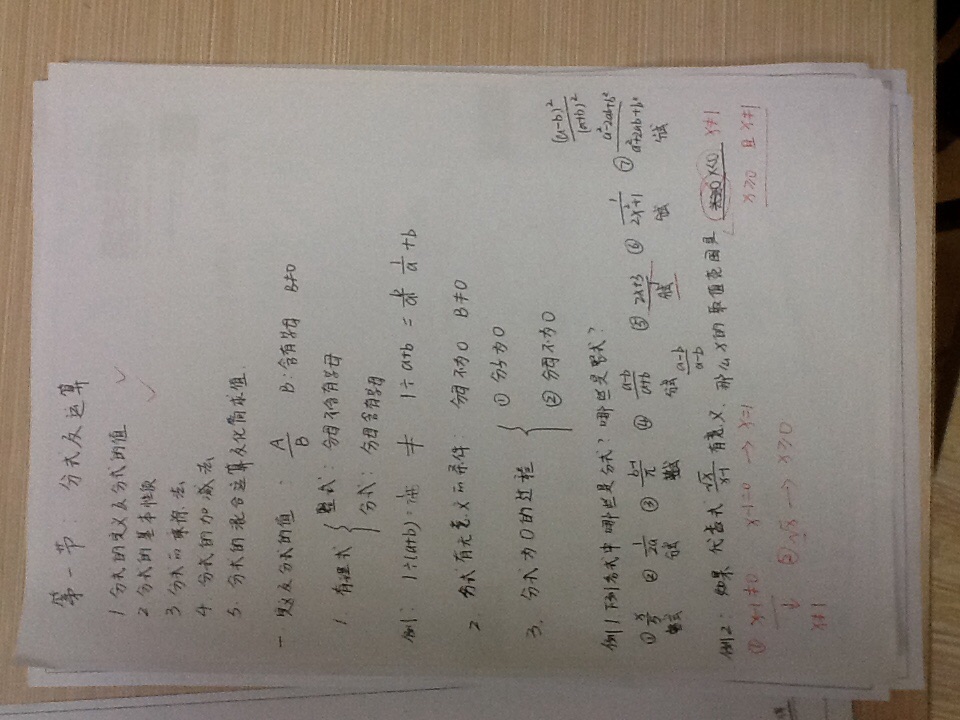 第一节：分式及运算
1 分式的定义及分式的值 ✓
2 分式的基本性质 ✓
3 分式的乘除法
4. 分式的加减法
5. 分式的混合运算及化简求值.
一 定义及分式的值： A/B B：含有字母 B≠0
1 有理式 { 整式：分母不含有字母
分式：分母含有字母
例：1÷(a+b)=1/(a+b) ≠ 1÷a+b = 1/a+b
2 分式有意义的条件：分母不为0 B≠0
3. 分式为0的过程 { ① 分子为0
② 分母不为0
(a-b)²/(a+b)²
例1 下列各式中哪些是分式？哪些是整式？
① x/3 ② 1/2a ③ b-1/π ④ a-b/a+b ⑤ 2x+3/ ⑥ 1/2x²+1 ⑦ a²-2ab+b²/a²+2ab+b²
整式 分式 整式 分式 分式 分式 分式
a-b/a-b
例2：如果代数式 √x/x-1 有意义，那么x的取值范围是 x≠1
① x-1≠0 x-1=0 → x=1 x≥0 且 x≠1
↓ ② √x → x≥0
x≠1